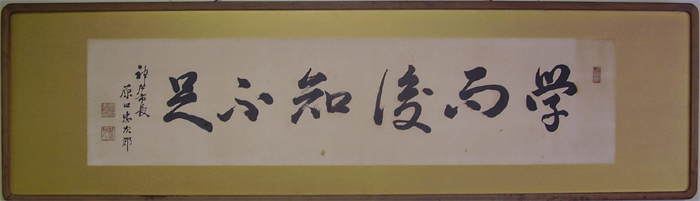 学而後知不足
神戸市長
原口忠次郎